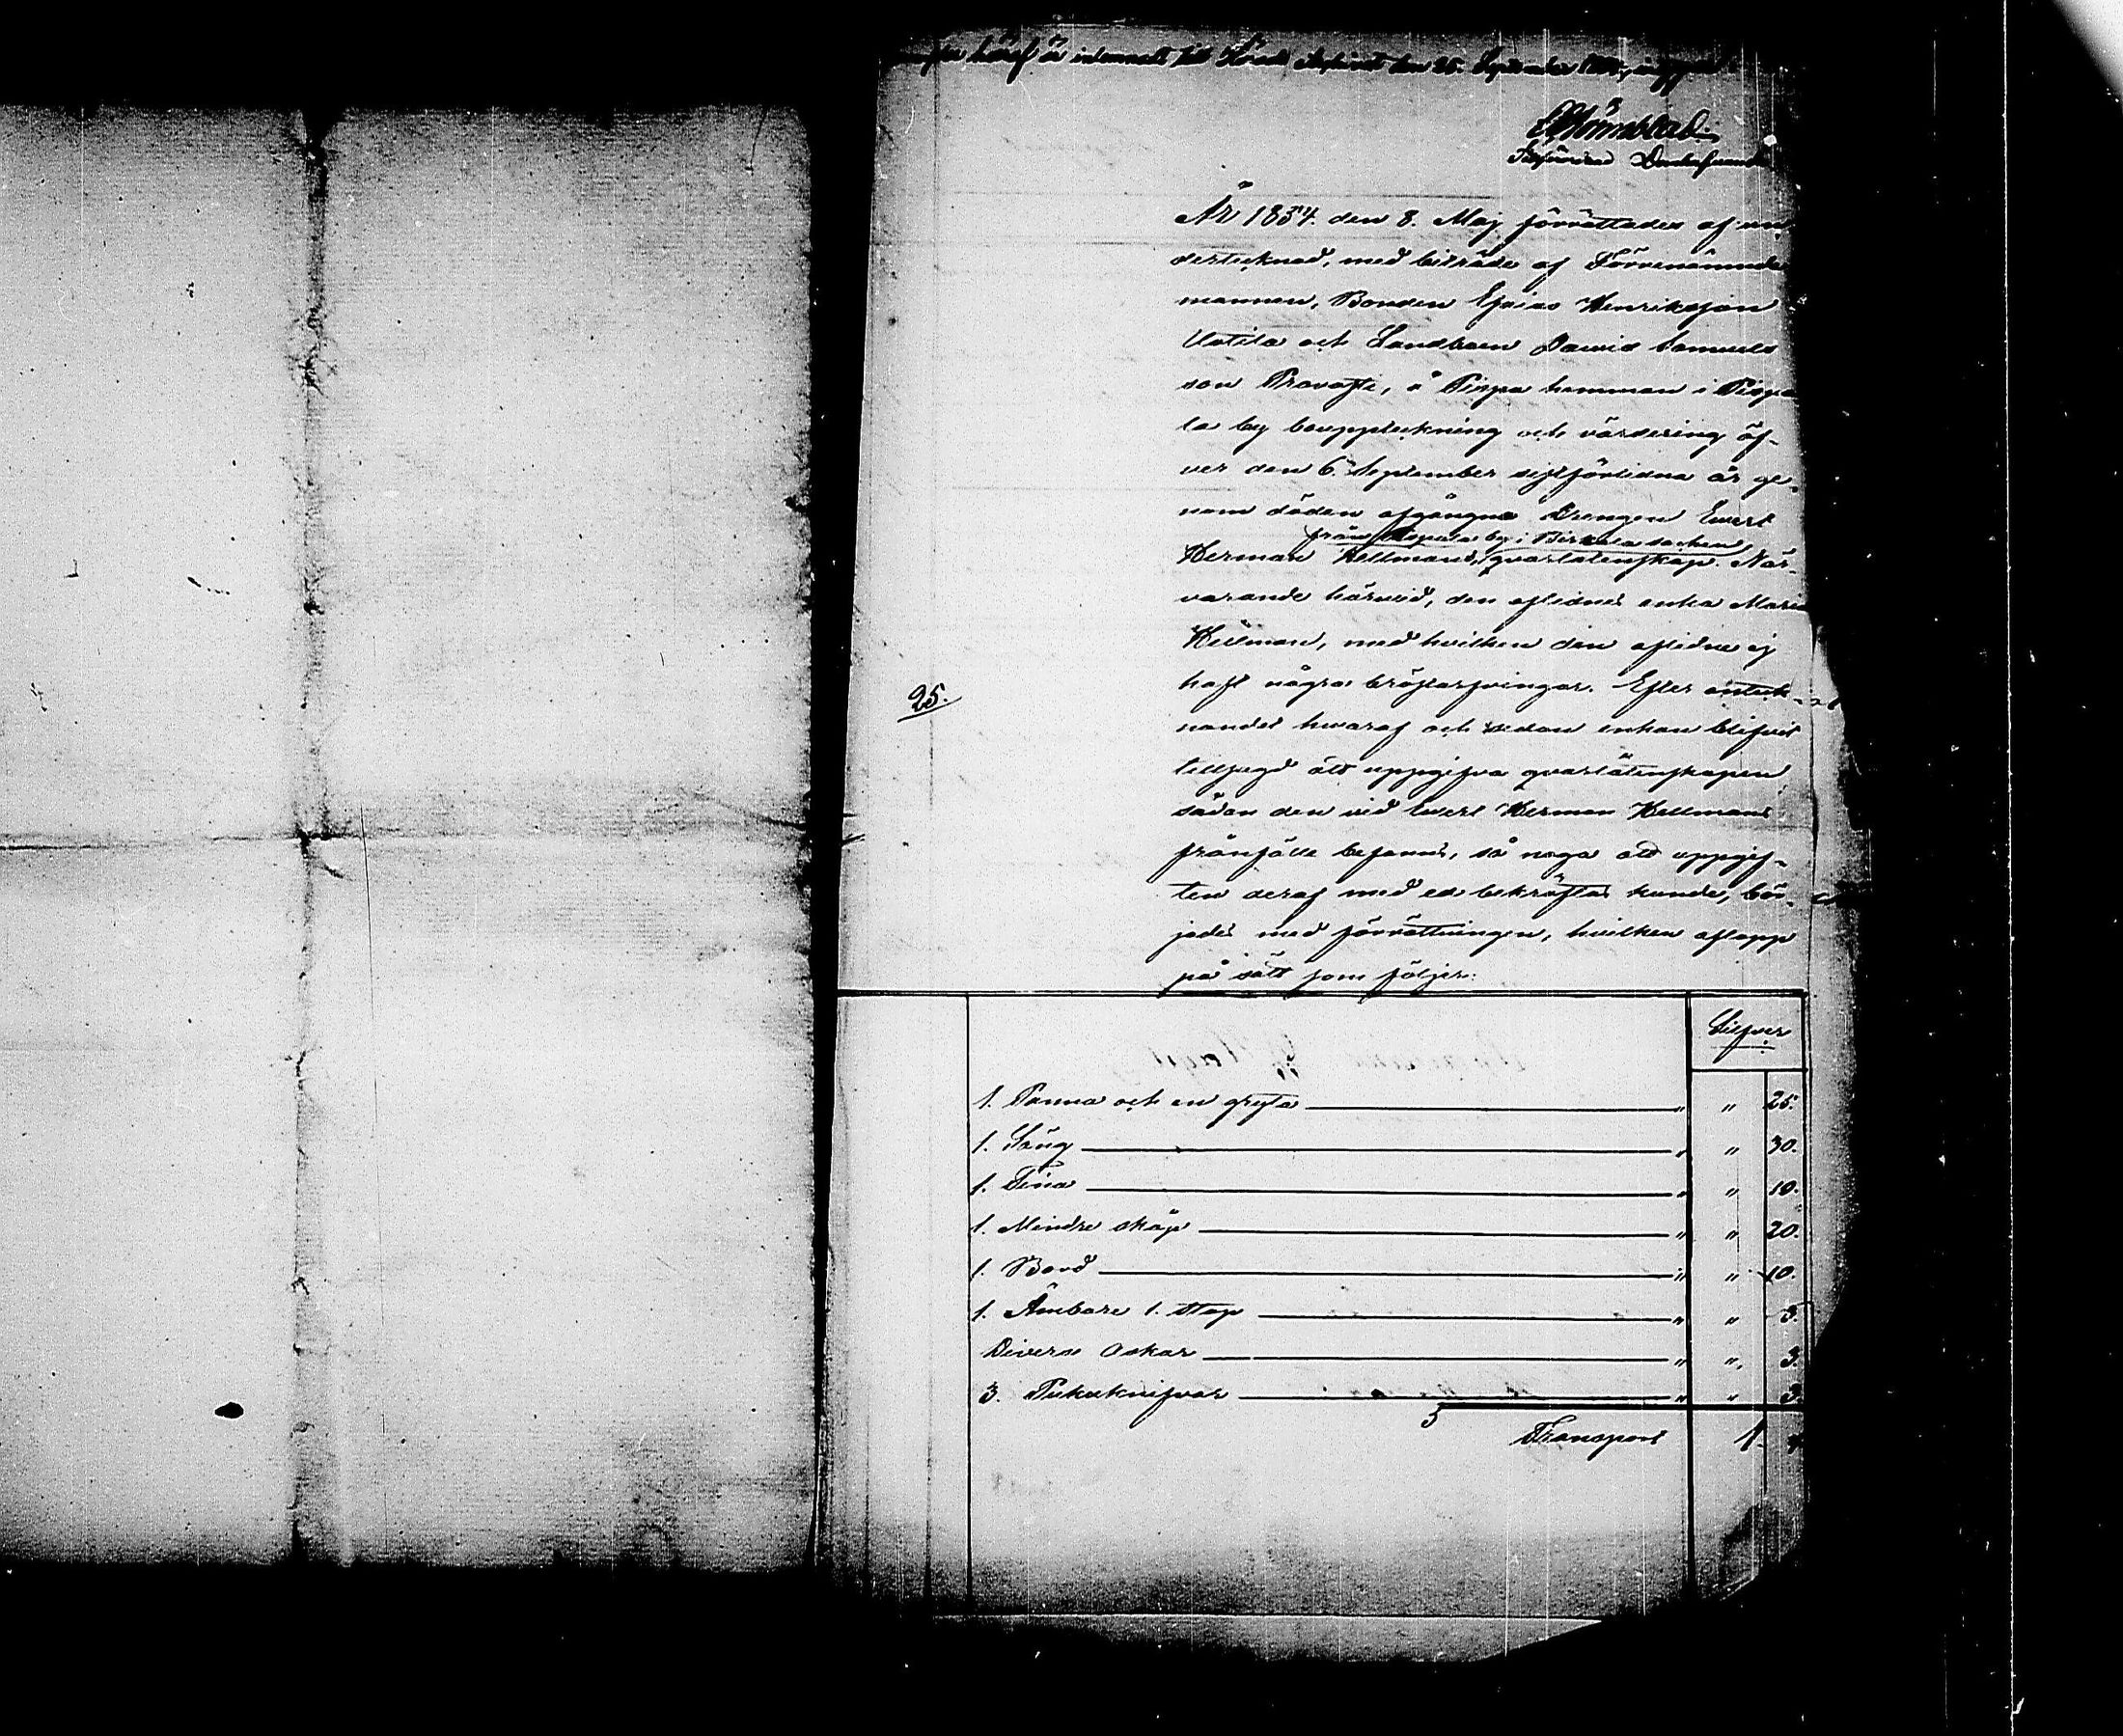 härof är inlemnad till Härads den 25. September
År 1854. den 8. Maj, förrättades af un-
dertecknad, med biträde af Förrenämnde
mannen, Bonden Esaias Henriksson
Uotila och Landboen David Samuels
son Provasti, å Pispa hemman i Pispa
la by bouppteckning och värdering öf-
ver den 6. September sistförlidna år ge-
nom döden afgångne Drengen Evert
från by i Birkala socken
Herman Hellmans, qvarlåtenskap. När-
varande härvid, den aflidnes enka Maria
Hellman, med hvilken den aflidne ej
haft några bröstarfvingar. Efter anteck-
nandet hvaraf och sedan enkan blifvit
tillsagd att uppgifva qvarlåtenskapen
sådan den vid Evert Herman Hellmans
frånfälle befanns, så noga att uppgif-
ten deraf med ed bekräftas kunde, bör-
jades med förrättningen, hvilken aflopp
på sätt som följer:
25.
Silfver
1. Panna och en gryta " " 25.
1. Säng " " 30.
1. Tina " " 10.
1. Mindre skåp " " 20.
1. Bord " " 10.
1. Ämbare 1. stop " " 3.
Diverse askar " " 3.
3. knifvar " " 3.
Transport 1.